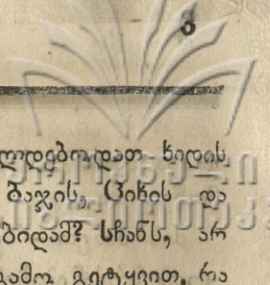 3
ლდებოდათ ხიდის
ბაჯის, ციხის და
ბიდამ? სჩანს, არ
გამო გეტყვით, რა